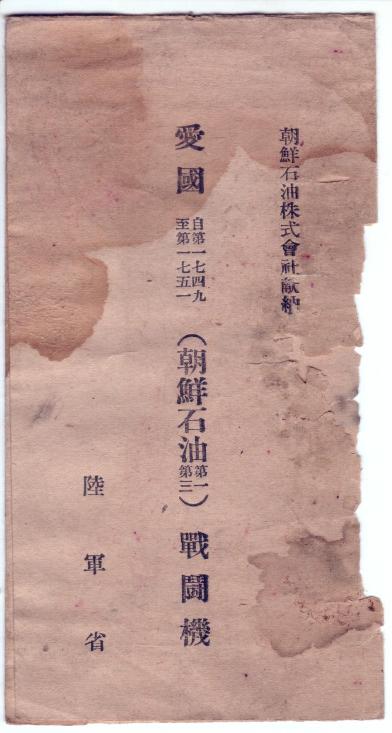 朝鮮石油株式會社献納
愛國 自第一七四九 至第一七五一 (朝鮮石油 第一 第三) 戰鬪機
陸軍省